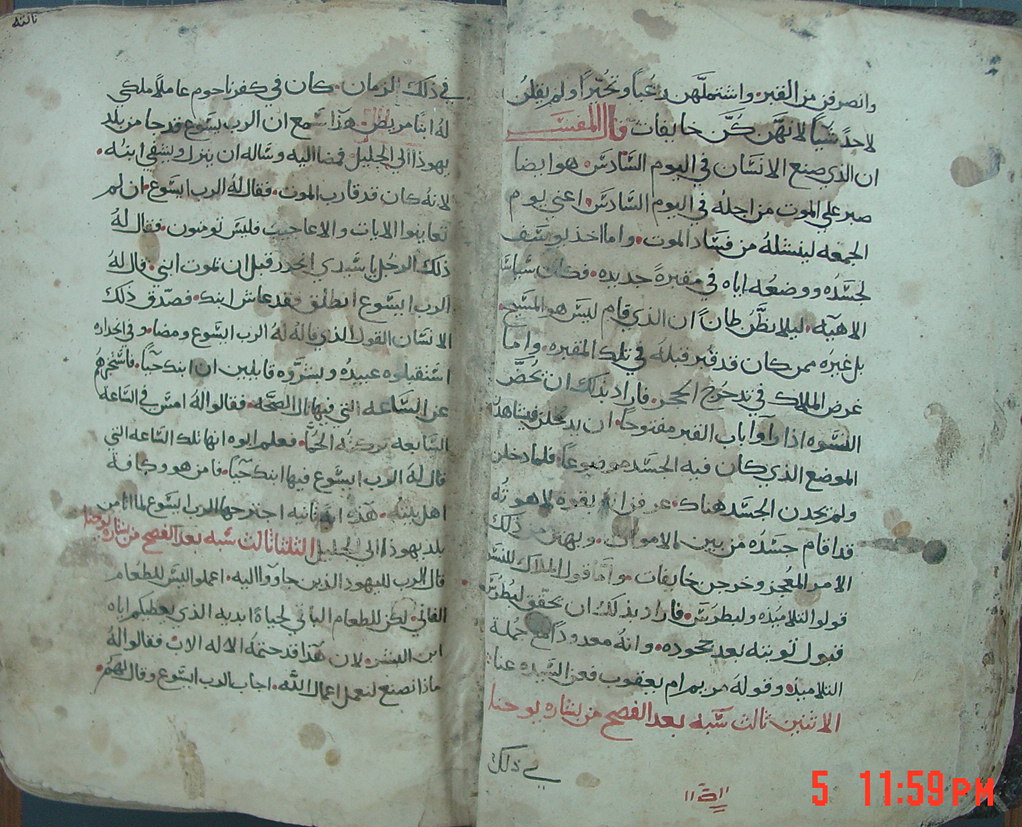 وانصرفن من القبر واشتملهن رعباً وتحيّراً ولم يقلن
لاحدٍ شياً لانهن كنّ خايفات قال المفسر
ان الذي صنع الانسان في اليوم السادس هو ايضا
صبر على الموت من اجله في اليوم السادس اعني يوم
الجمعه لينشله من فساد الموت واما اخذ يوسف
لجسده ووضعه اياه في مقبرةً جديده فكان سياسةً
الاهيه ليلا يظن ظانٌ ان الذي قام ليس هو المسيح
بل غيره ممن كان قد قبر قبله في تلك المقبره واما
غرض الملاك في تدحرج الحجر فاراد بذلك ان يحضّ
النسوه اذا راوا باب القبر مفتوحاً ان يدخلن فيشاهدن
الموضع الذي كان فيه الجسد موضوعاً فلما دخلن
ولم يجدن الجسد هناك عرفن انه بقوة لاهوته
قد اقام جسده من بين الاموات وبهتن من ذلك
الامر المعجز وخرجن خايفات واما قول الملاك للنسوه
قولوا لتلاميذه ولبطرس فاراد بذلك ان يحقق لبطرس
قبول توبته بعد جحوده وانه معدوداً مع جملة
التلاميذه وقوله مريم ام يعقوب فعن السيده عنا
الاثنين ثالث سبه بعد الفصح من بشاره يوحنا
في ذلك
ثالثه
في ذلك الزمان كان في كفرناحوم عاملاً ملكي
له ابناً مريض هذا سمع ان الرب ايسوع قد جا من بلد
يهوذا الى الجليل فمضا اليه وساله ان ينزل ويشفي ابنه
لانه كان قد قارب الموت فقال له الرب ايسوع ان لم
تعاينوا الايات والاعاجيب فليس تومنون فقال له
ذلك الرجل يا سيدي انحدر قبل ان يموت ابني قال له
الرب ايسوع انطلق فقد عاش ابنك فصدق ذلك
الانسان القول الذي قاله له الرب ايسوع ومضا وفي انحداره
استقبلوه عبيده وبشروه قايلين ان ابنك حيّاً فاستخبرهم
عن الساعه التي فيها الصحّه فقالوا له امس في الساعه
السابعه تركته الحمّا فعلم ابوه انها تلك الساعه التي
قال له الرب ايسوع فيها ابنك حيّاً فامن هو وكافة
اهل بيته هذه اية ثانيه اجترحها الرب ايسوع لما اتا من
بلد يهوذا الى الجليل الثلثا ثالث سبه بعد الفصح من بشاره يوحنا
قال الرب لليهود الذين جاووا اليه اعملوا ليس للطعام
الفاني لكن للطعام الباقي لحياةً ابديه الذي يعطيكم اياه
ابن البشر لان هذا قد ختمه الاله الاب فقالوا له
ماذا نصنع لنعمل اعمال الله اجاب الرب ايسوع وقال لهم
5 11:59 PM